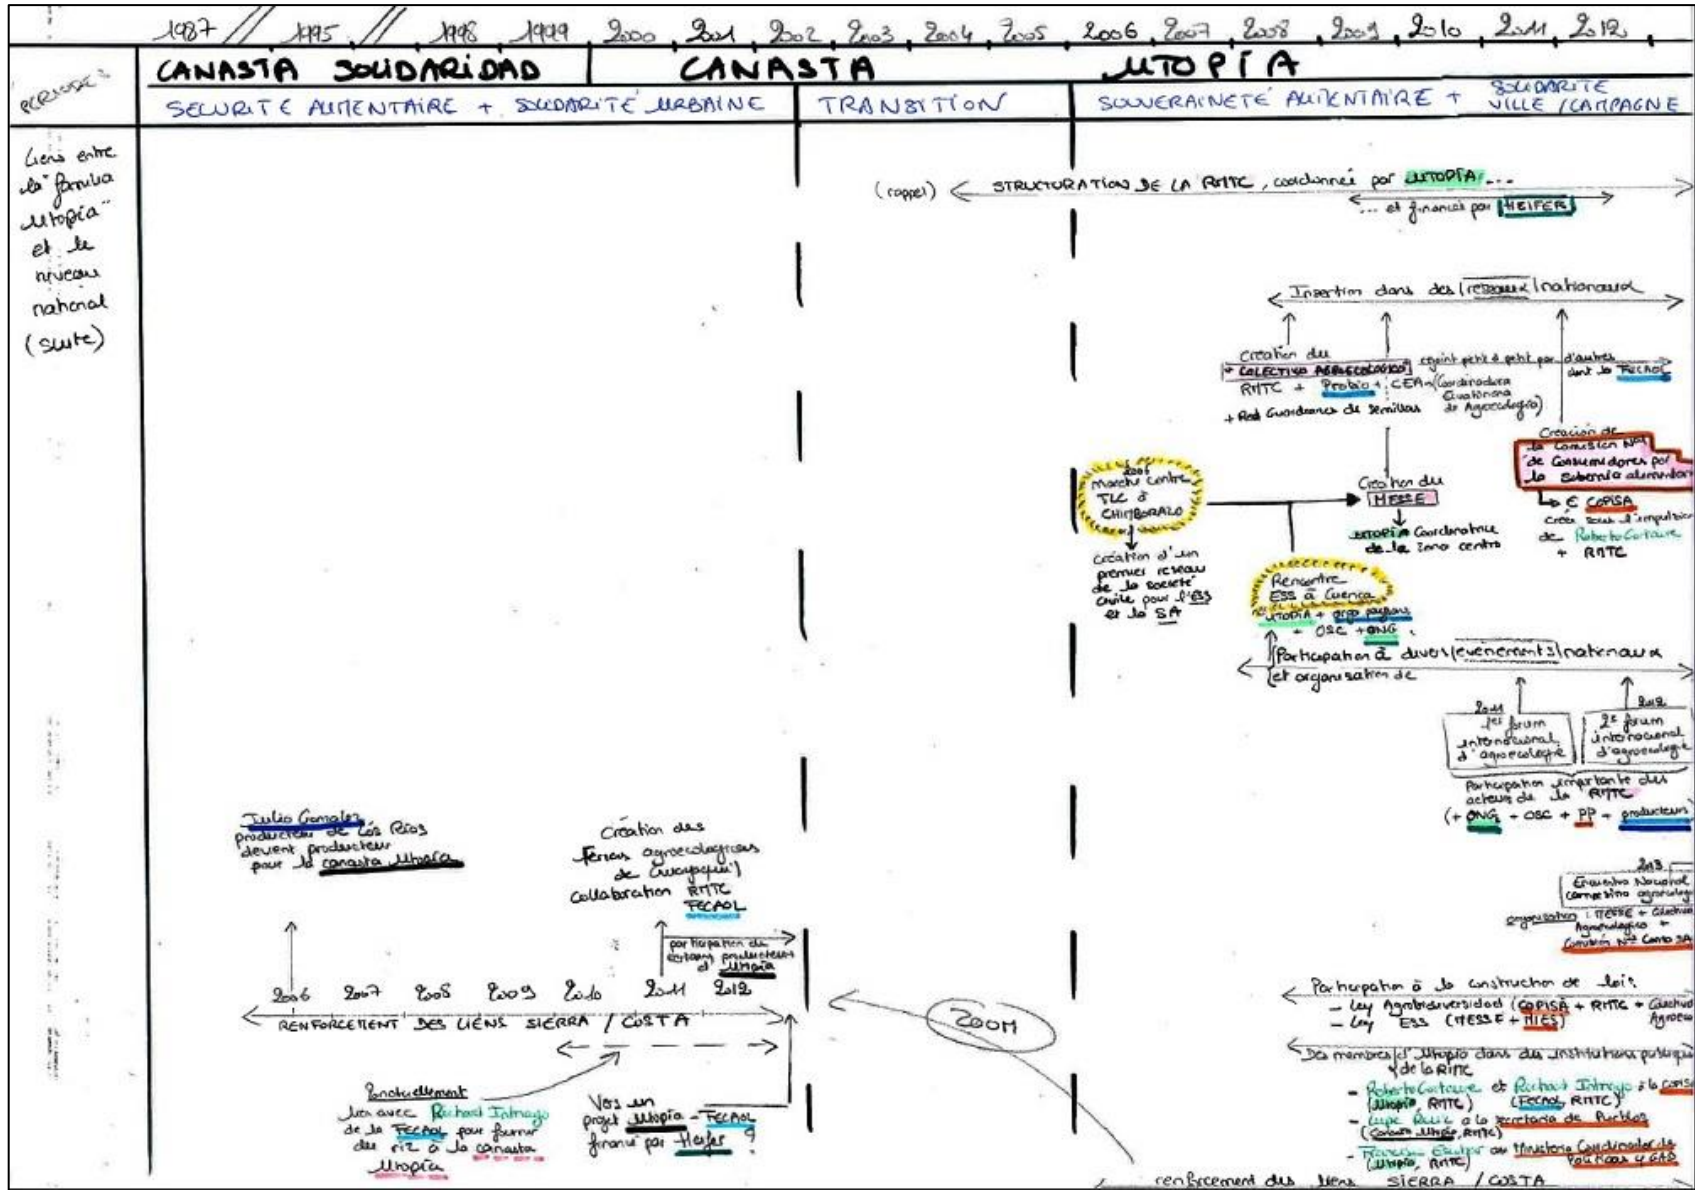 1987 // 1995 // 1998 1999 2000 2001 2002 2003 2004 2005 2006 2007 2008 2009 2010 2011 2012
PERIODES
CANASTA SOLIDARIDAD CANASTA UTOPÍA
SECURITE ALIMENTAIRE + SOLIDARITÉ URBAINE
TRANSITION
SOUVERAINETÉ ALIMENTAIRE + SOLIDARITE
VILLE / CAMPAGNE
Liens entre
la "familia
Utopía"
et le
niveau
national
(suite)
(rappel) STRUCTURATION DE LA RMTC, coordonnée par UTOPÍA ...
... et financée par HEIFER
Insertion dans des réseaux nationaux
Création du
+ COLECTIVO AGROECOLOGICO
RMTC + Probio + CEA (Coordinadora
Ecuatoriana
de Agroecología)
+ Red Guardianes de Semillas
rejoint petit à petit par d'autres
dont la FECAOL
Creación de
la Comisión Nal
de Consumidores por
la soberanía alimentaria
€ COPISA
créée sous l'impulsion
de Roberto Gortaire
+ RMTC
2006
Marche contre
TLC à
CHIMBORAZO
création d'un
premier réseau
de la société
civile pour l'ESS
et la SA
Création du
MESSE
UTOPÍA Coordinatrice
de la zona centro
Rencontre
ESS à Cuenca
UTOPÍA + orga paysans
+ OSC + ONG
Participation à divers événements nationaux
et organisation de
2011
1er forum
internacional
d'agroecologie
2012
2e forum
internacional
d'agroecologie
Participation importante des
acteurs de la RMTC
(+ ONG + OSC + PP + producteurs)
2013
Encuentro Nacional
campesino agroecolog
organisation : MESSE + Colectivo
Agroecologico +
Comisión Nal Conso SA
Julio Gonzalez,
producteur de Los Ríos
devient producteur
pour la canasta Utopía
Création des
Ferias agroecologicas
de Guayaquil
collaboration RMTC
FECAOL
participation de
certains producteurs
d'Utopía
2006 2007 2008 2009 2010 2011 2012
RENFORCEMENT DES LIENS SIERRA / COSTA
ZOOM
Ponctuellement
lien avec Richard Intriago
de la FECAOL pour fournir
du riz à la canasta
Utopía
Vers un
projet Utopía - FECAOL
financé par Heifer ?
Participation à la construction de lois
- Ley Agrobiodiversidad (COPISA + RMTC + Colectivo
Agroeco
- Ley ESS (MESSE + MIES)
Des membres d'Utopía dans des institutions publiques
de la RMTC
- Roberto Gortaire et Richard Intriago à la COPISA
(Utopía, RMTC) (Fecaol, RMTC)
- Lupe Ruiz a la secretaría de Pueblos
(Canasta Utopía, RMTC)
- au Ministerio Coordinador de
Politicas y GAD
(Utopía, RMTC)
renforcement des liens SIERRA / COSTA